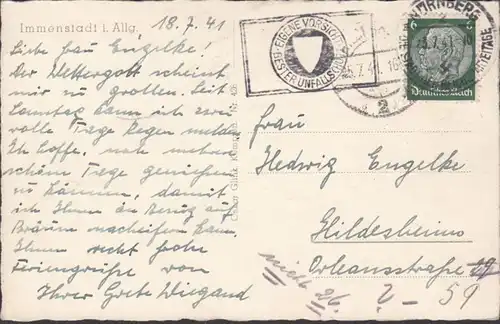 Immenstadt i. Allg.
18.7.41
Liebe Frau Engelke!
Der Wettergott scheint
mir zu grollen. Seit
Samstag kann ich zwei
volle Tage Regen melden.
Ich hoffe, noch mehrere
schöne Tage genießen
zu können, damit
ich Ihnen in Bezug auf
Bräune nacheifern kann.
Ihnen recht frohe
Feriengrüße von
Ihrer Grete Wiegand
EIGENE VORSICHT
BESTER UNFALLSCHUTZ
NÜRNBERG
2
6
Deutsches Reich
Frau
Hedwig Engelke
Hildesheim
Orleansstraße
nicht 26
2 - 59